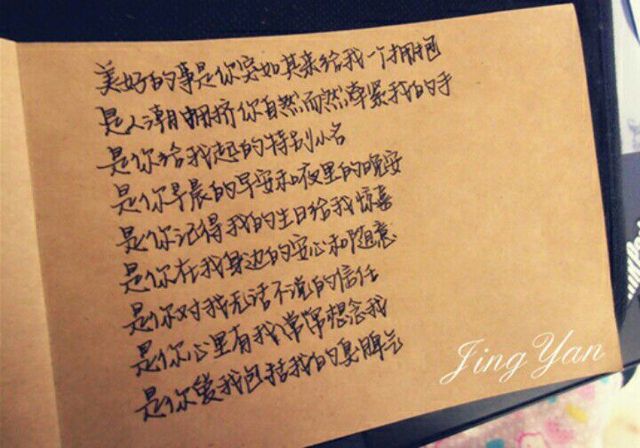 美好的事是你突如其来给我一个拥抱
是人潮拥挤你自然而然牵紧我的手
是你给我起的特别小名
是你早晨的早安和夜里的晚安
是你记得我的生日给我惊喜
是你在我身边的安心和随意
是你对我无话不说的信任
是你心里有我常常想念我
是你爱我包括我的臭脾气
Jing Yan